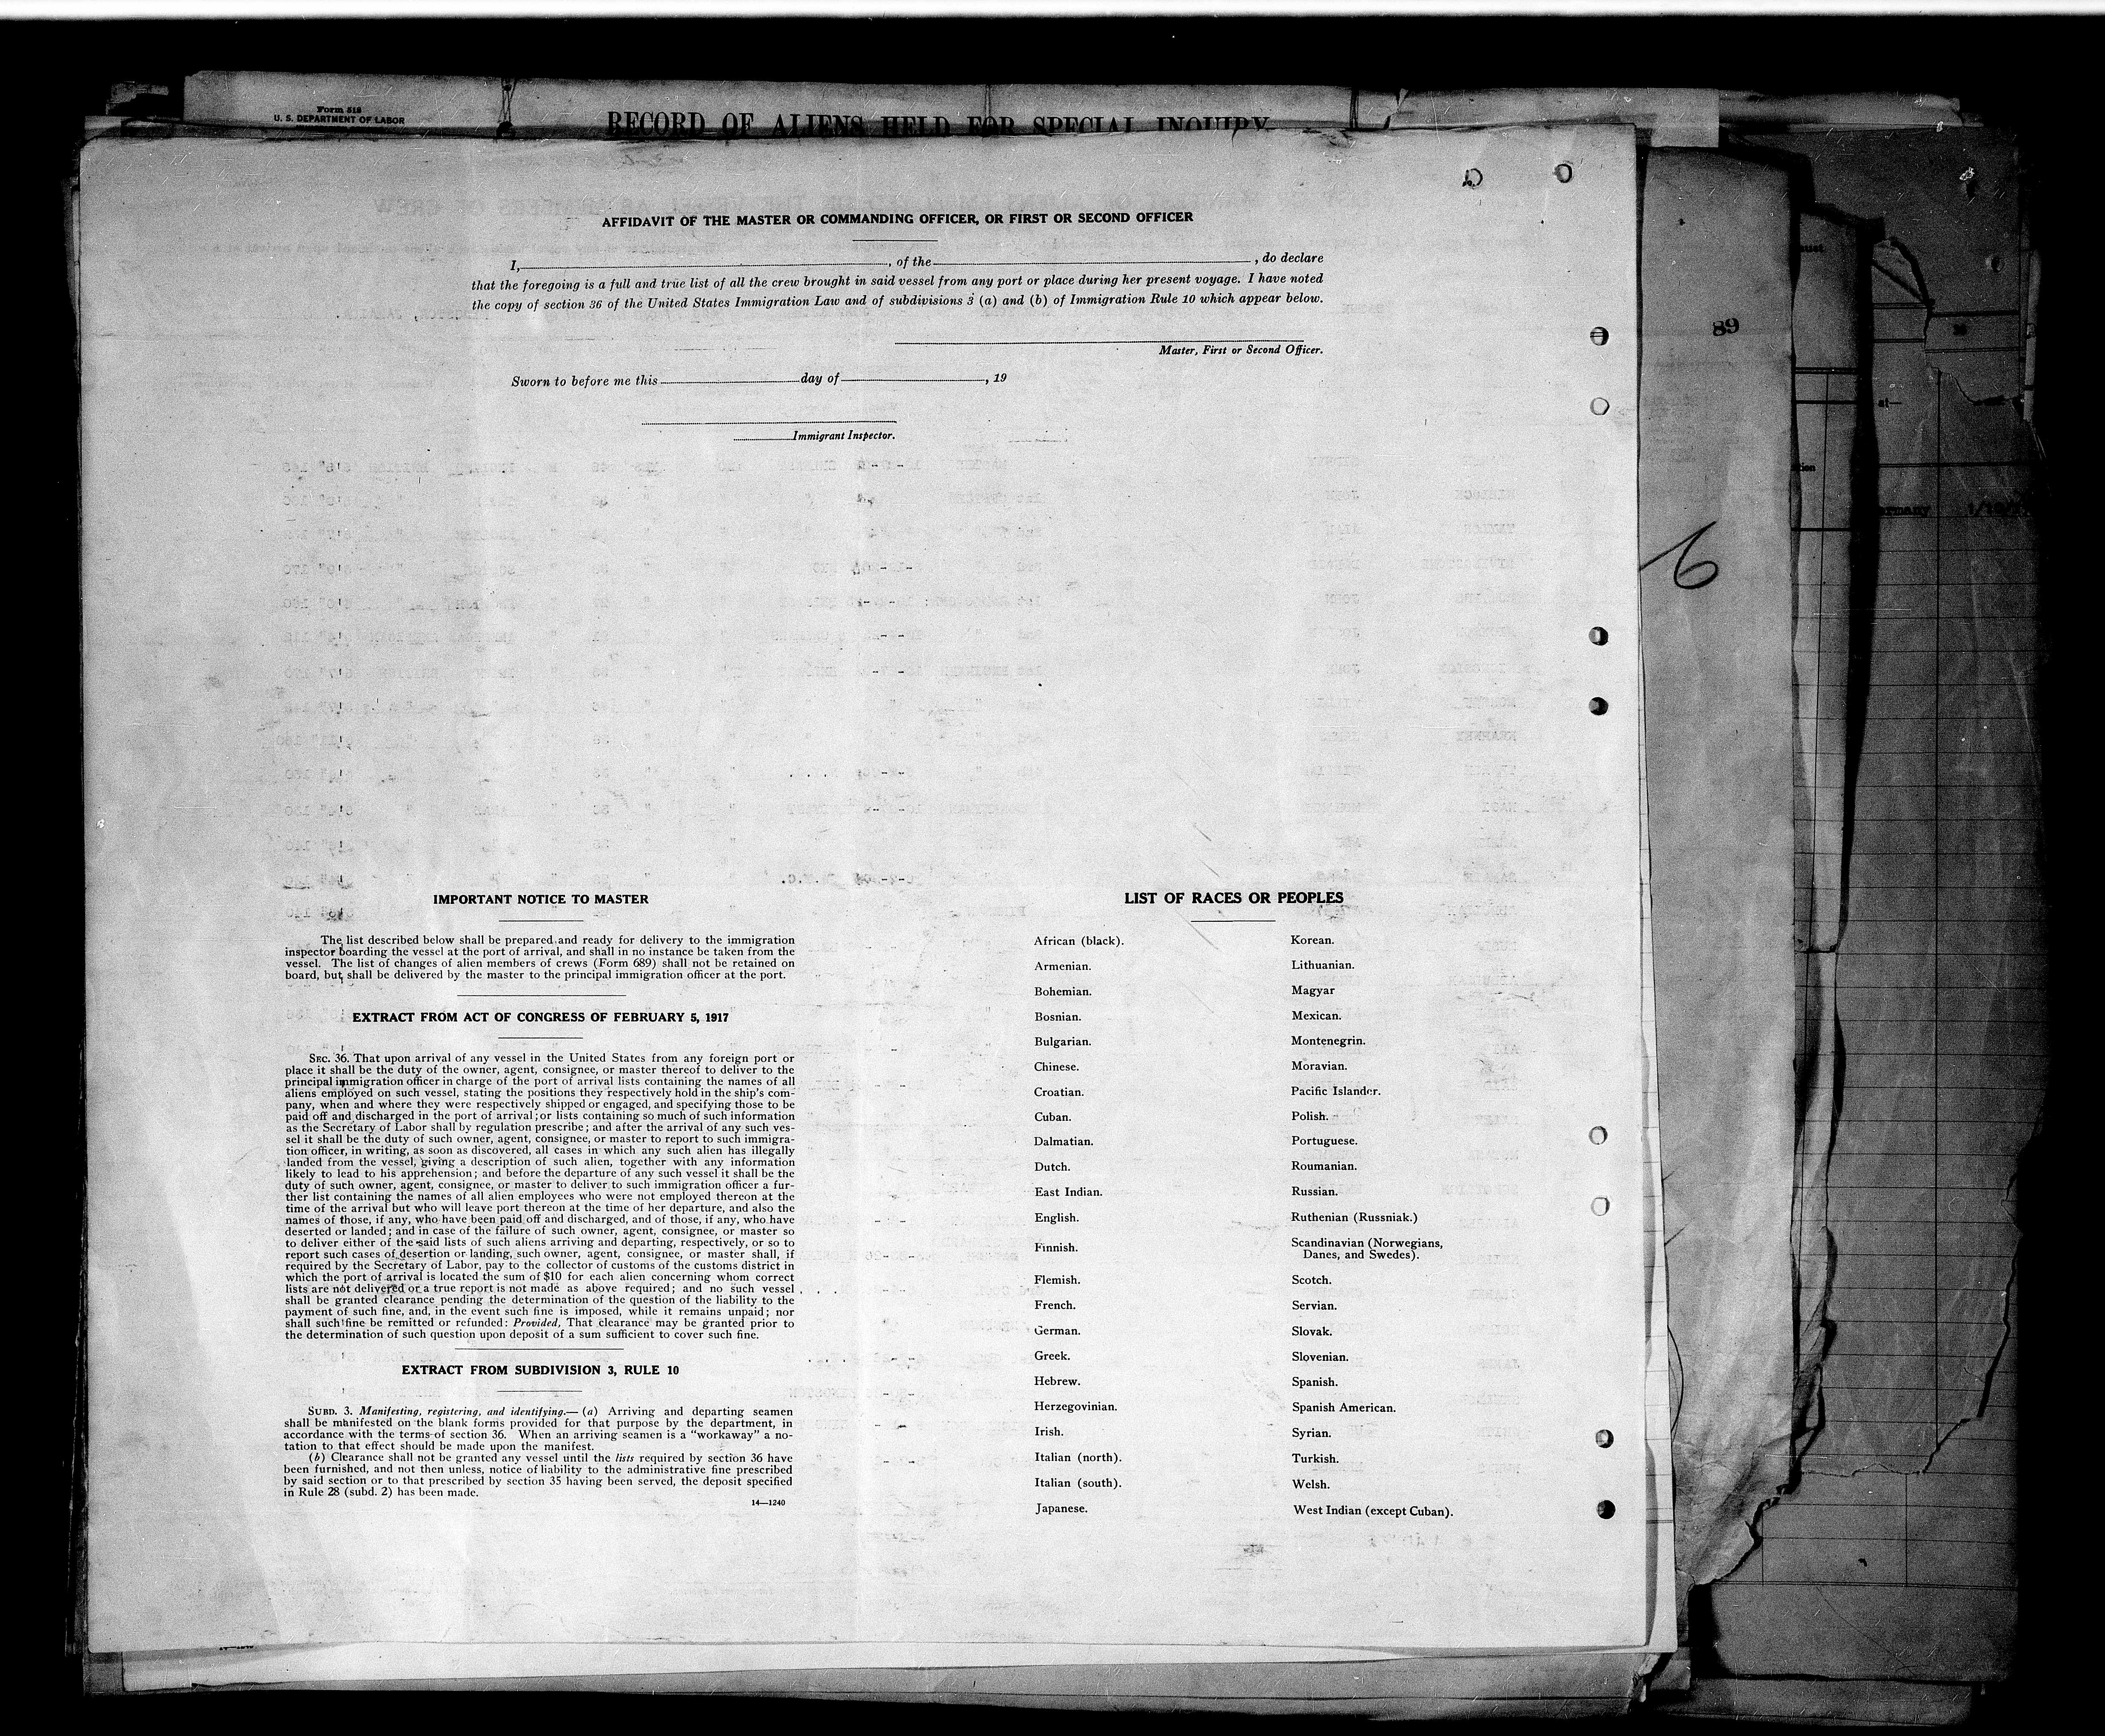 Form 518
U. S. DEPARTMENT OF LABOR
RECORD OF ALIENS HELD FOR SPECIAL INQUIRY
AFFIDAVIT OF THE MASTER OR COMMANDING OFFICER, OR FIRST OR SECOND OFFICER
I, , of the , do declare
that the foregoing is a full and true list of all the crew brought in said vessel from any port or place during her present voyage. I have noted
the copy of section 36 of the United States Immigration Law and of subdivisions 3 (a) and (b) of Immigration Rule 10 which appear below.
Master, First or Second Officer.
Sworn to before me this day of , 19
Immigrant Inspector.
89
6
IMPORTANT NOTICE TO MASTER
The list described below shall be prepared and ready for delivery to the immigration
inspector boarding the vessel at the port of arrival, and shall in no instance be taken from the
vessel. The list of changes of alien members of crews (Form 689) shall not be retained on
board, but shall be delivered by the master to the principal immigration officer at the port.
EXTRACT FROM ACT OF CONGRESS OF FEBRUARY 5, 1917
SEC. 36. That upon arrival of any vessel in the United States from any foreign port or
place it shall be the duty of the owner, agent, consignee, or master thereof to deliver to the
principal immigration officer in charge of the port of arrival lists containing the names of all
aliens employed on such vessel, stating the positions they respectively hold in the ship's com-
pany, when and where they were respectively shipped or engaged, and specifying those to be
paid off and discharged in the port of arrival; or lists containing so much of such information
as the Secretary of Labor shall by regulation prescribe; and after the arrival of any such ves-
sel it shall be the duty of such owner, agent, consignee, or master to report to such immigra-
tion officer, in writing, as soon as discovered, all cases in which any such alien has illegally
landed from the vessel, giving a description of such alien, together with any information
likely to lead to his apprehension; and before the departure of any such vessel it shall be the
duty of such owner, agent, consignee, or master to deliver to such immigration officer a fur-
ther list containing the names of all alien employees who were not employed thereon at the
time of the arrival but who will leave port thereon at the time of her departure, and also the
names of those, if any, who have been paid off and discharged, and of those, if any, who have
deserted or landed; and in case of the failure of such owner, agent, consignee, or master so
to deliver either of the said lists of such aliens arriving and departing, respectively, or so to
report such cases of desertion or landing, such owner, agent, consignee, or master shall, if
required by the Secretary of Labor, pay to the collector of customs of the customs district in
which the port of arrival is located the sum of $10 for each alien concerning whom correct
lists are not delivered or a true report is not made as above required; and no such vessel
shall be granted clearance pending the determination of the question of the liability to the
payment of such fine, and, in the event such fine is imposed, while it remains unpaid; nor
shall such fine be remitted or refunded: Provided, That clearance may be granted prior to
the determination of such question upon deposit of a sum sufficient to cover such fine.
EXTRACT FROM SUBDIVISION 3, RULE 10
SUBD. 3. Manifesting, registering, and identifying.—(a) Arriving and departing seamen
shall be manifested on the blank forms provided for that purpose by the department, in
accordance with the terms of section 36. When an arriving seamen is a "workaway" a no-
tation to that effect should be made upon the manifest.
(b) Clearance shall not be granted any vessel until the lists required by section 36 have
been furnished, and not then unless, notice of liability to the administrative fine prescribed
by said section or to that prescribed by section 35 having been served, the deposit specified
in Rule 28 (subd. 2) has been made.
14—1240
LIST OF RACES OR PEOPLES
African (black).
Armenian.
Bohemian.
Bosnian.
Bulgarian.
Chinese.
Croatian.
Cuban.
Dalmatian.
Dutch.
East Indian.
English.
Finnish.
Flemish.
French.
German.
Greek.
Hebrew.
Herzegovinian.
Irish.
Italian (north).
Italian (south).
Japanese.
Korean.
Lithuanian.
Magyar
Mexican.
Montenegrin.
Moravian.
Pacific Islander.
Polish.
Portuguese.
Roumanian.
Russian.
Ruthenian (Russniak.)
Scandinavian (Norwegians,
Danes, and Swedes).
Scotch.
Servian.
Slovak.
Slovenian.
Spanish.
Spanish American.
Syrian.
Turkish.
Welsh.
West Indian (except Cuban).